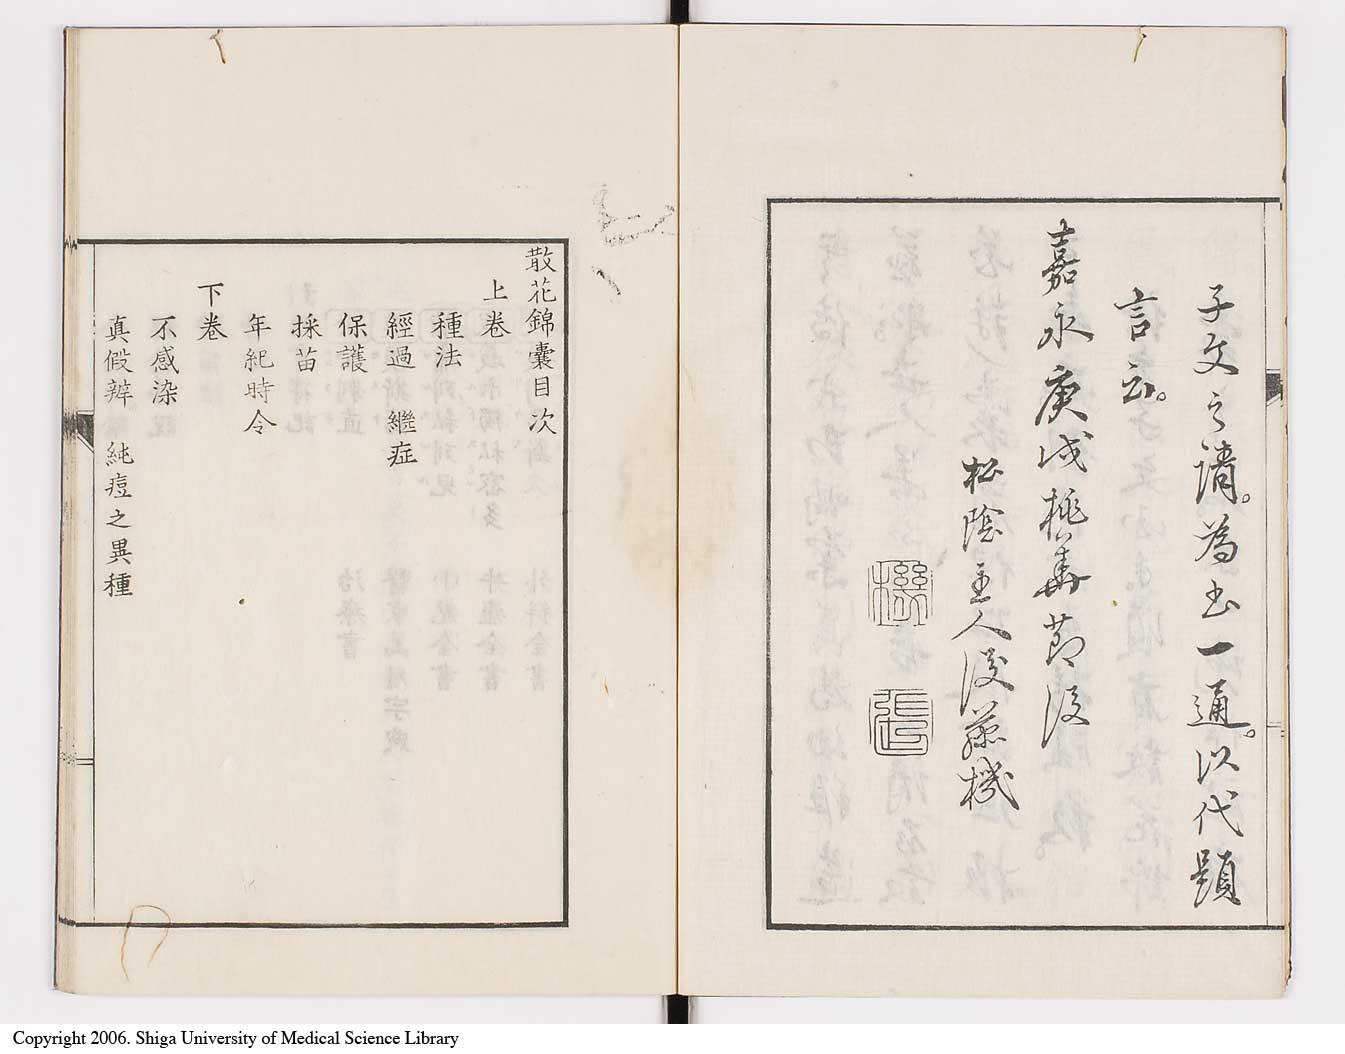 子文之請。為書一通。以代題
言云。
嘉永庚戌桃華節後
松陰主人後藤機
機
張
散花錦囊目次
上卷
種法
經過 繼症
保護
採苗
年紀時令
下卷
不感染
真假辨 純痘之異種
Copyright 2006. Shiga University of Medical Science Library